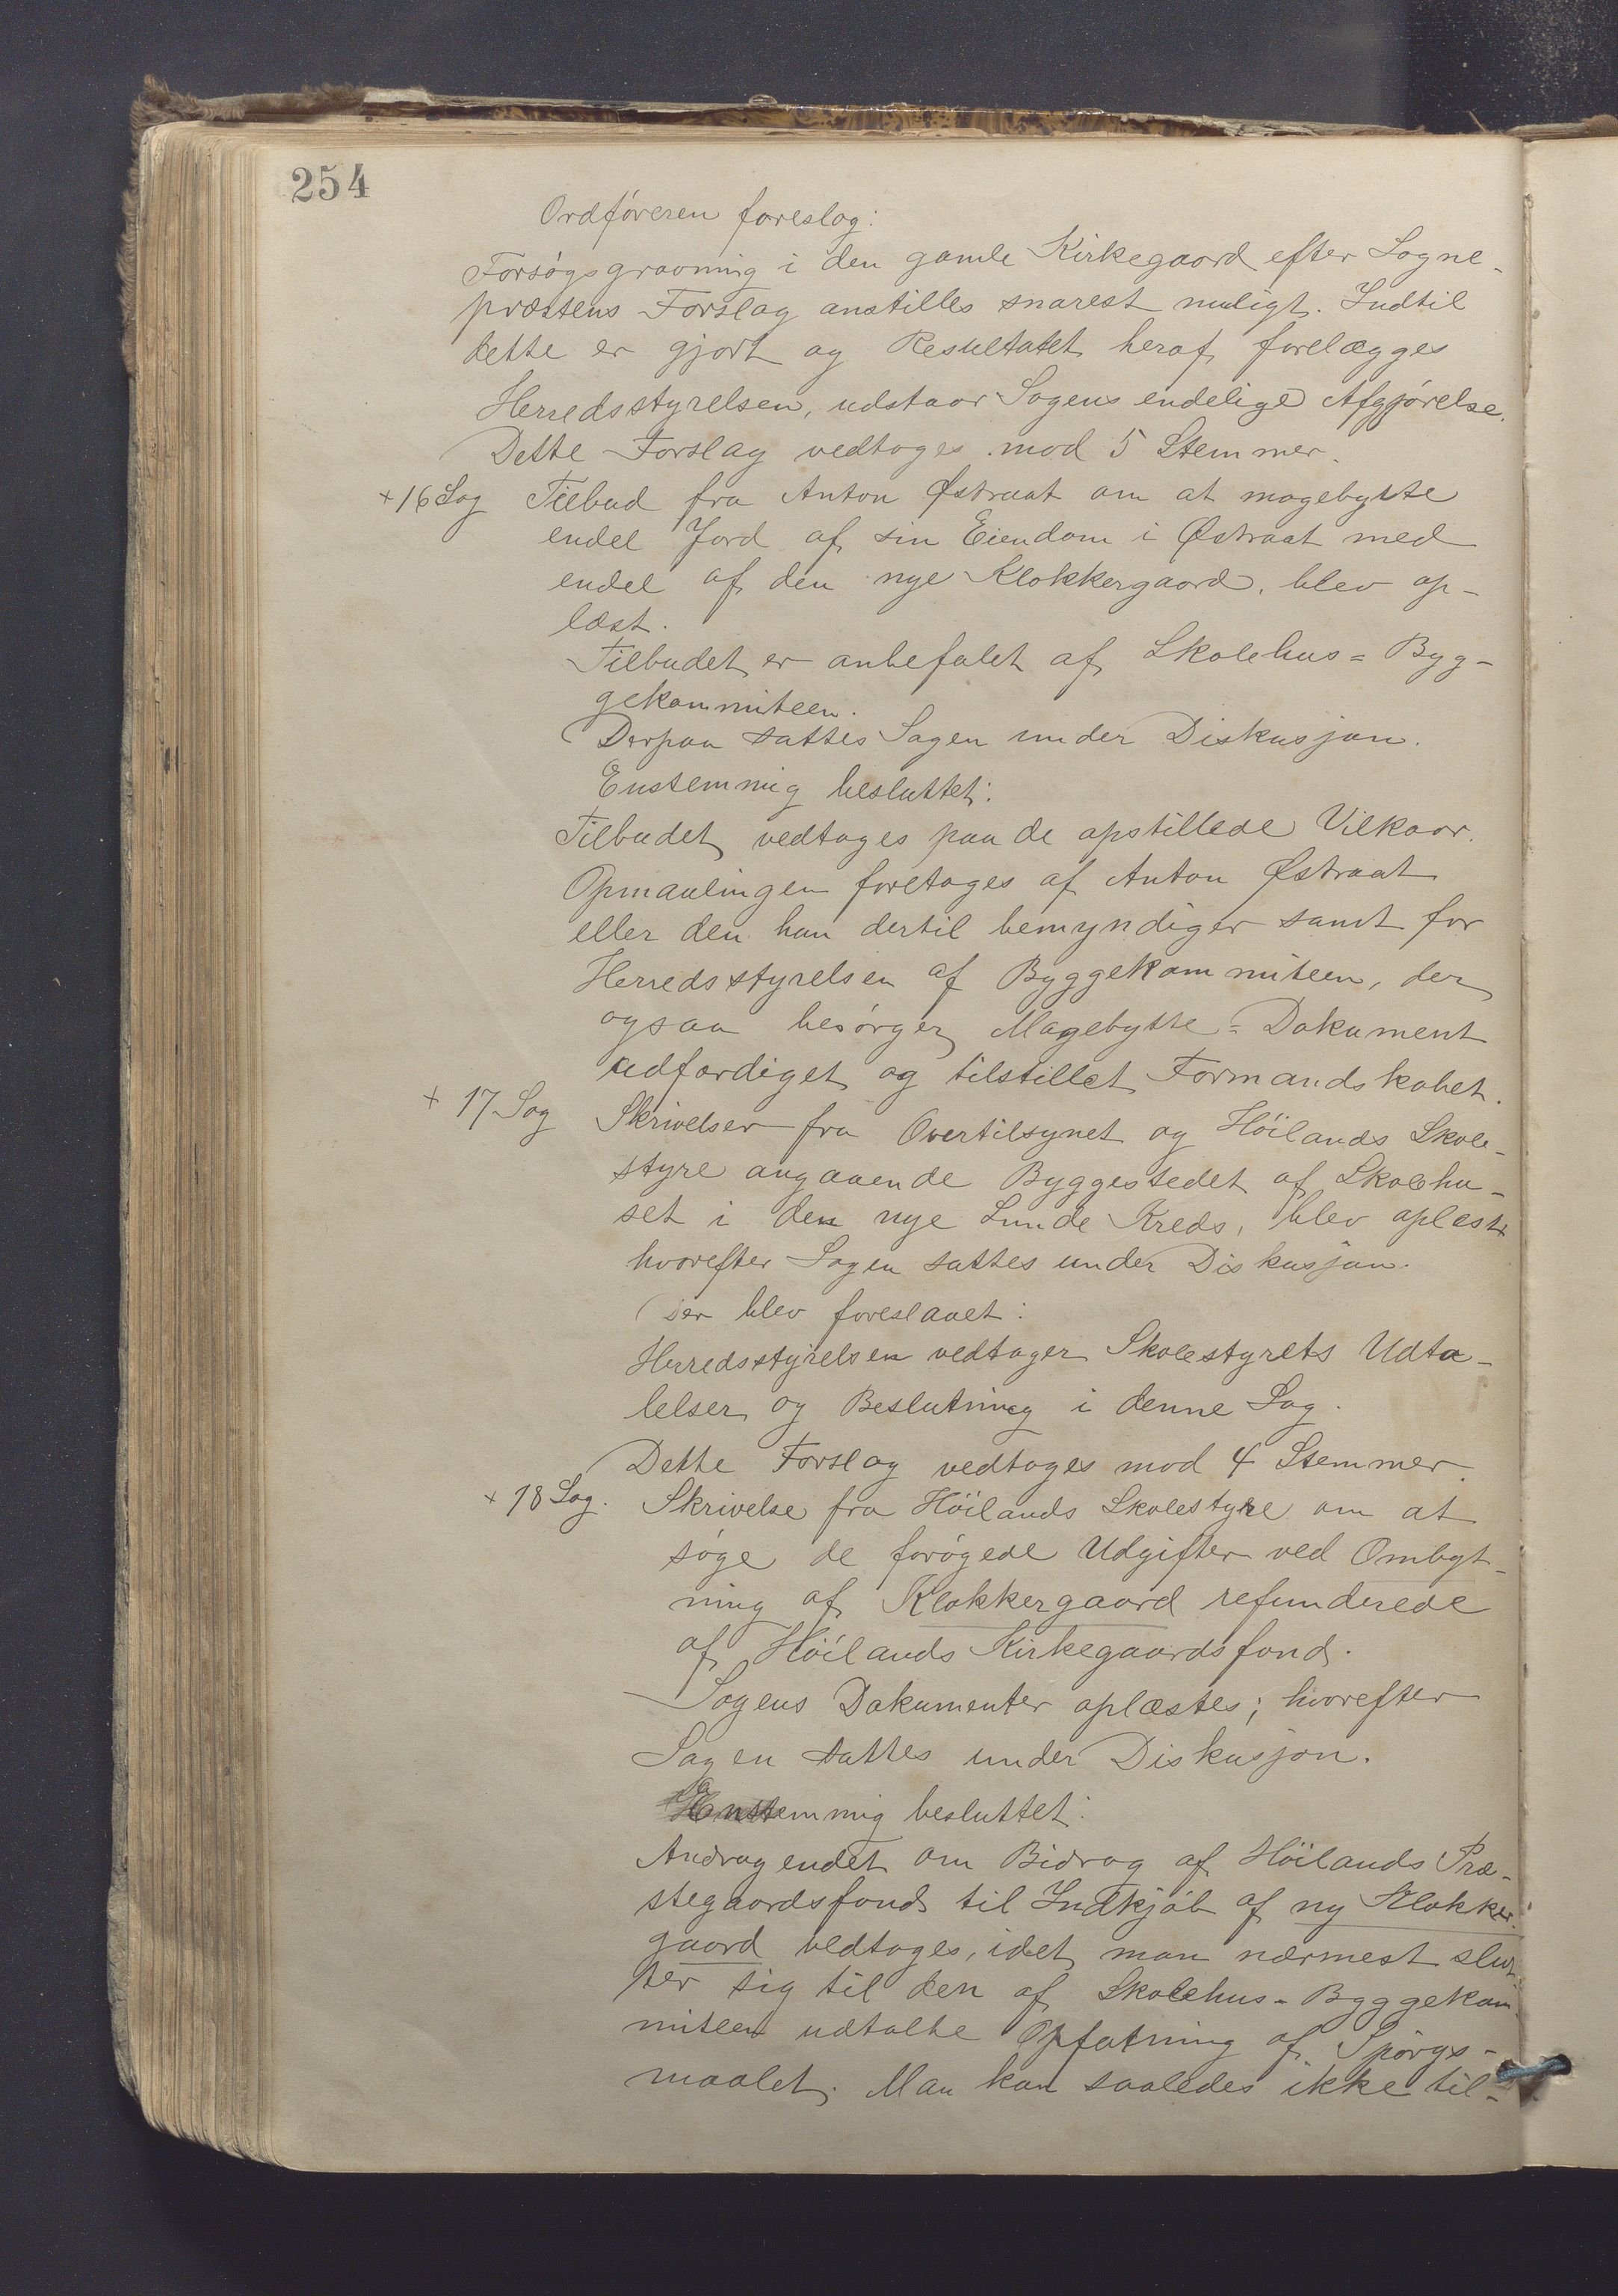 254
Ordføreren foreslog:
Forsøgsgravning i den gamle Kirkegaard efter Sogne-
præstens Forslag anstilles snarest muligt. Indtil
dette er gjort og Resultatet heraf forelægges
Herredsstyrelsen, udstaar Sagens endelige Afgjørelse.
Dette Forslag vedtoges mod 5 Stemmer.
+ 16 Sag Tilbud fra Anton Østraat om at magebytte
endel Jord af sin Eiendom i Østraat med
endel af den nye Klokkergaard, blev op-
læst.
Tilbudet er anbefalet af Skolehus=Byg-
gekommiteen.
Derpaa sattes Sagen under Diskusjon.
Enstemmig besluttet:
Tilbudet vedtages paa de opstillede Vilkaar.
Opmaalingen foretages af Anton Østraat
eller den han dertil bemyndiger samt for
Herredsstyrelsen af Byggekommiteen, der
ogsaa besørger Magebytte=Dokument
udfærdiget og tilstillet Formandskabet.
+ 17 Sag Skrivelser fra Overtilsynet og Höilands Skole-
styre angaaende Byggestedet af Skolehu-
set i den nye Lunde Kreds, blev oplæst
hvorefter Sagen sattes under Diskusjon.
Der blev foreslaaet:
Herredsstyrelsen vedtager Skolestyrets Udta-
lelser og Beslutning i denne Sag.
Dette Forslag vedtoges mod 4 Stemmer.
+ 18 Sag. Skrivelse fra Höilands Skolestyre om at
søge de forøgede Udgifter ved Ombyt-
ning af Klokkergaard refunderede
af Höilands Kirkegaardsfond.
Sagens Dokumenter oplæstes; hvorefter
Sagen sattes under Diskusjon.
Enstemmig besluttet:
Andragendet om Bidrag af Höilands Præ-
stegaardsfond til Indkjøb af ny Klokker-
gaard vedtages, idet man nærmest slut-
ter sig til den af Skolehus-Byggekom-
miteen udtalte Opfatning af Spørgs-
maalet. Man kan saaledes ikke til-